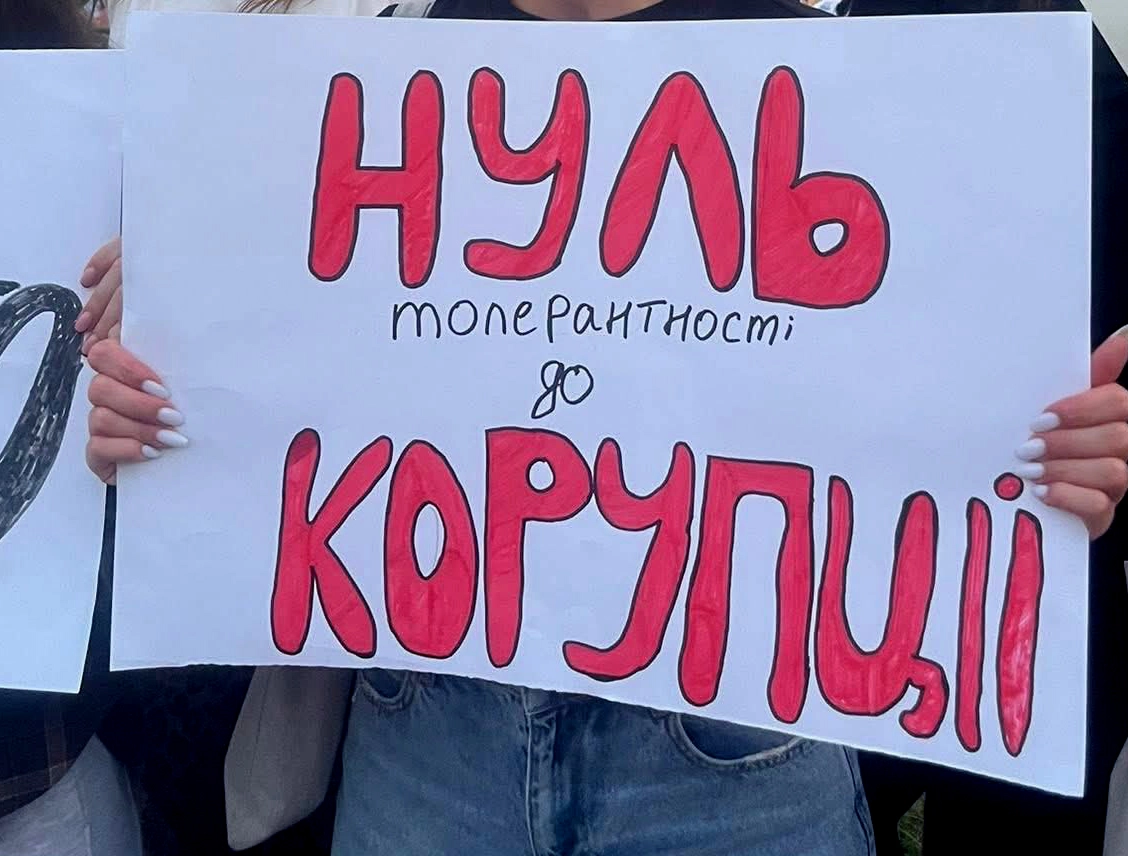 НУЛЬ
толерантності
до
КОРУПЦІЇ